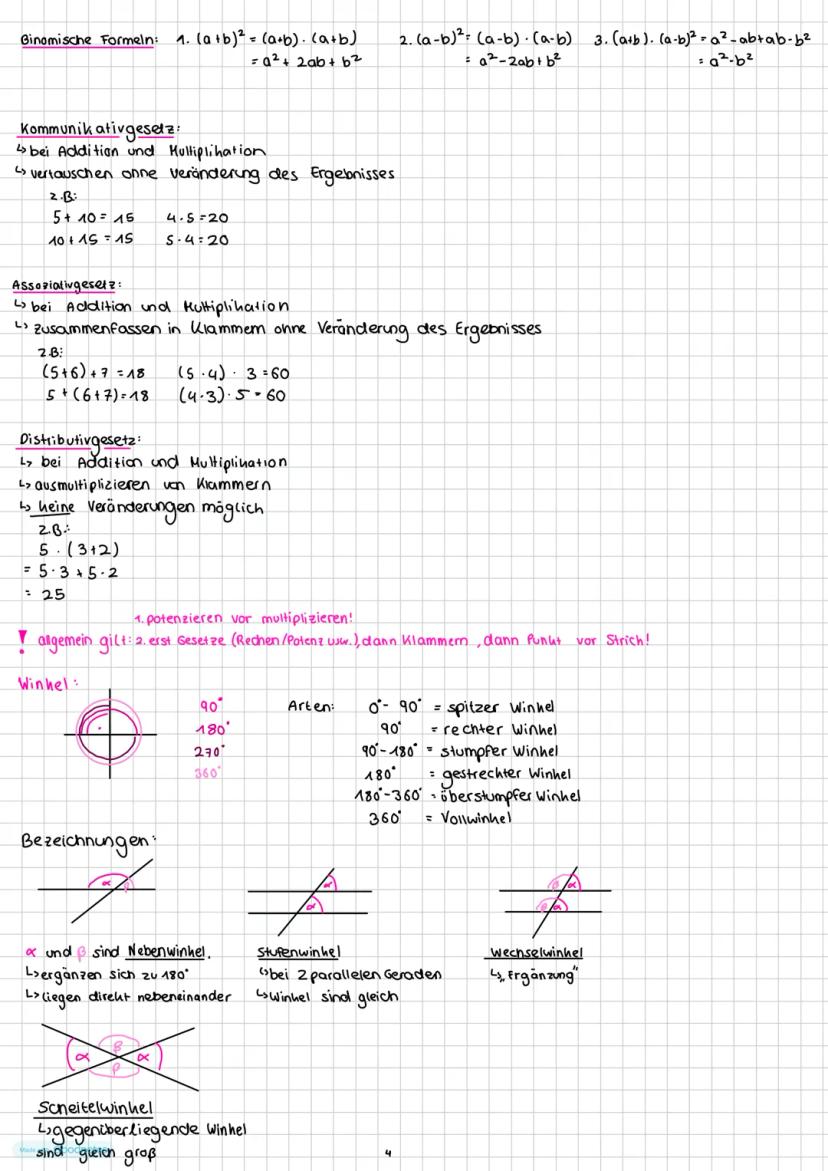 Binomische Formeln: 1. (a+b)² = (a+b) · (a+b) 2. (a-b)² = (a-b) · (a-b) 3. (a+b) · (a-b)² = a² - ab + ab - b²
= a² + 2ab + b² = a² - 2ab + b² = a² - b²
Kommunikativgesetz:
↳ bei Addition und Multiplikation
↳ vertauschen ohne Veränderung des Ergebnisses
z.B:
5 + 10 = 15 4 · 5 = 20
10 + 15 = 15 5 · 4 = 20
Assoziativgesetz:
↳ bei Addition und Multiplikation
↳ zusammenfassen in Klammern ohne Veränderung des Ergebnisses
z.B:
(5+6) + 7 = 18 (5 · 4) · 3 = 60
5 + (6+7) = 18 (4 · 3) · 5 = 60
Distributivgesetz:
↳ bei Addition und Multiplikation
↳ ausmultiplizieren von Klammern
↳ keine Veränderungen möglich
z.B.:
5 · (3+2)
= 5 · 3 + 5 · 2
= 25
1. potenzieren vor multiplizieren!
! allgemein gilt: 2. erst Gesetze (Rechen/Potenz usw.), dann Klammern, dann Punkt vor Strich!
Winkel:
90° Arten: 0° - 90° = spitzer Winkel
180° 90° = rechter Winkel
270° 90° - 180° = stumpfer Winkel
360° 180° = gestreckter Winkel
180° - 360° = überstumpfer Winkel
360° = Vollwinkel
Bezeichnungen:
α β α β α
α β α
α und β sind Nebenwinkel. Stufenwinkel Wechselwinkel
↳ ergänzen sich zu 180° ↳ bei 2 parallelen Geraden ↳ „Ergänzung"
↳ liegen direkt nebeneinander ↳ Winkel sind gleich
β
α α
β
Scheitelwinkel
↳ gegenüberliegende Winkel
sind gleich groß
4